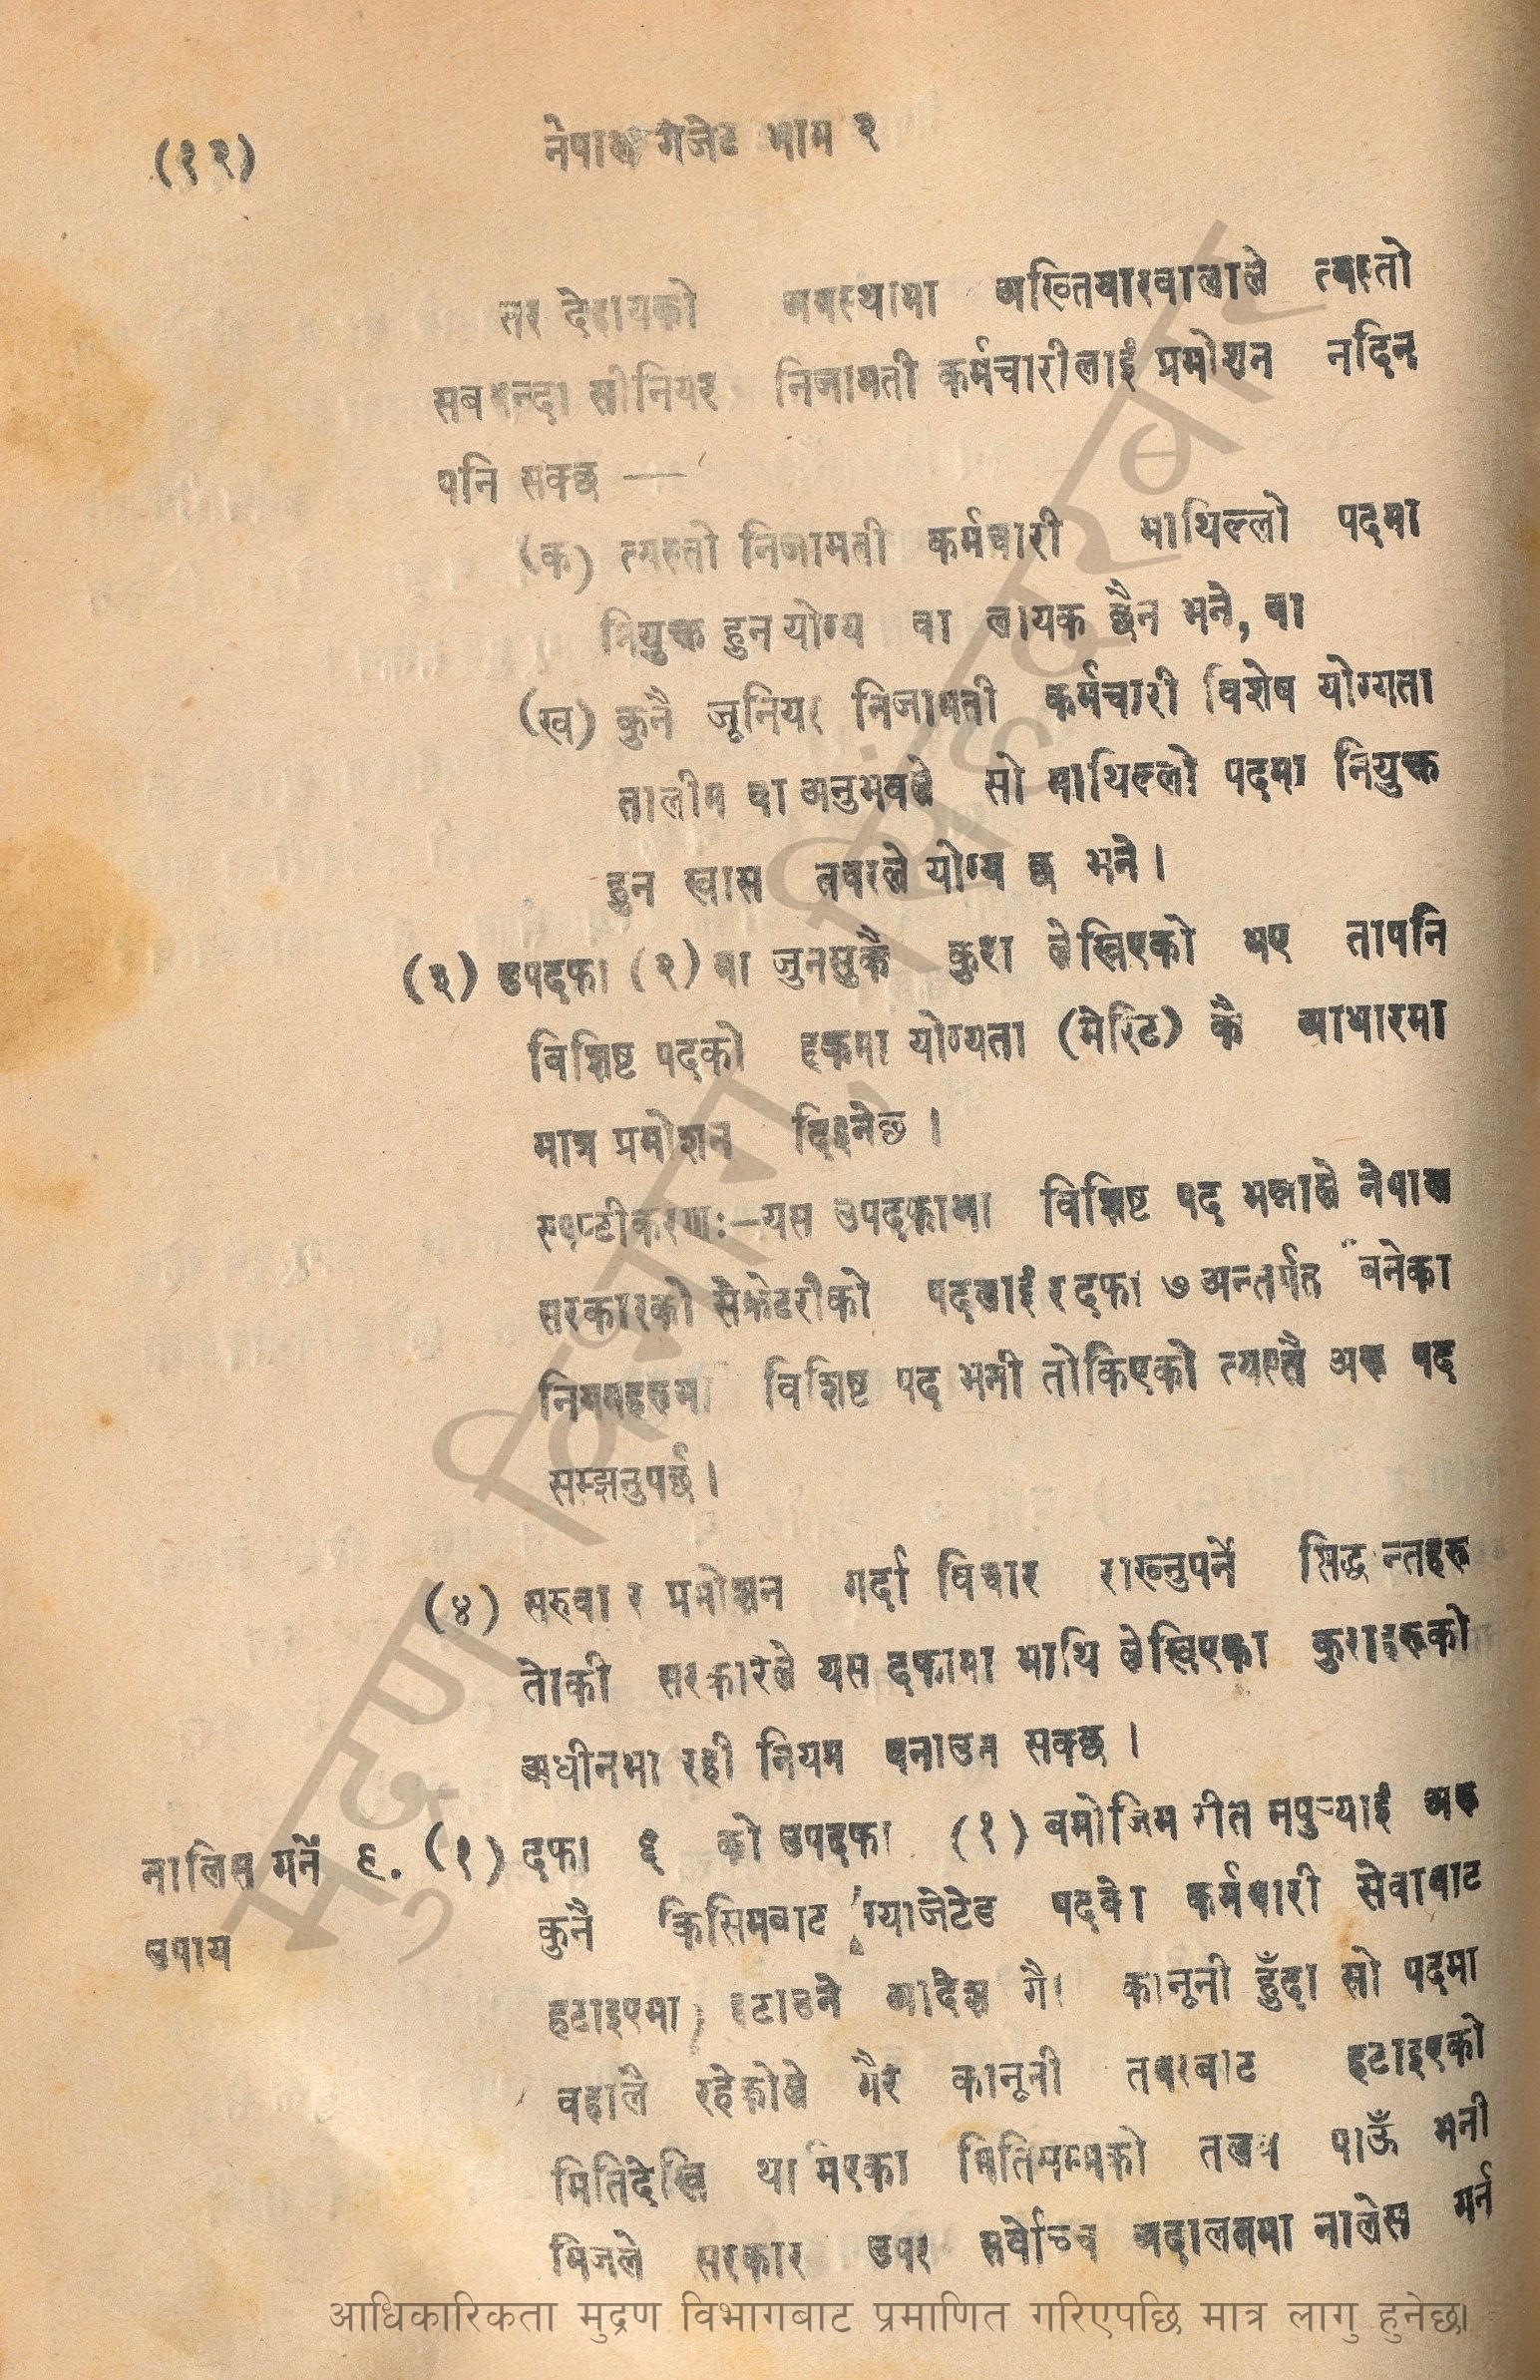 (१२) नेपाल गेजेट भाग २
तर देहायको अवस्थामा अख्तियारवालाले त्यस्तो
सबभन्दा सीनियर निजामती कर्मचारीलाई प्रमोशन नदिन
पनि सक्छ —
(क) त्यस्तो निजामती कर्मचारी माथिल्लो पदमा
नियुक्त हुन योग्य वा लायक छैन भने, वा
(ख) कुनै जूनियर निजामती कर्मचारी विशेष योग्यता
तालीम वा अनुभवले सो माथिल्लो पदमा नियुक्त
हुन खास तवरले योग्य छ भने।
(३) उपदफा (२) मा जुनसुकै कुरा लेखिएको भए तापनि
विशिष्ट पदको हकमा योग्यता (मेरिट) कै आधारमा
मात्र प्रमोशन दिइनेछ ।
स्पष्टीकरण:—यस उपदफामा विशिष्ट पद भन्नाले नेपाल
सरकारको सेक्रेटरीको पदलाई र दफा ७ अन्तर्गत बनेका
नियमहरुमा विशिष्ट पद भनी तोकिएको त्यस्तै अरु पद
सम्झनुपर्छ ।
(४) सरुवा र प्रमोशन गर्दा विचार राख्नुपर्ने सिद्धान्तहरु
तोकी सरकारले यस दफामा माथि लेखिएका कुराहरुको
अधीनमा रही नियम बनाउन सक्छ ।
नालिस गर्ने ९. (१) दफा ६ को उपदफा (१) बमोजिम रीत नपुर्‍याई अरु
उपाय कुनै किसिमबाट ग्याजेटेड पदको कर्मचारी सेवाबाट
हटाइएमा, हटाउने आदेश गैर कानूनी हुँदा सो पदमा
बहालै रहेकोले गैर कानूनी तवरबाट हटाइएको
मितिदेखि थामिएका मितिसम्मको तलब पाऊँ भनी
निजले सरकार उपर सर्वोच्च अदालतमा नालेस गर्न
आधिकारिकता मुद्रण विभागबाट प्रमाणित गरिएपछि मात्र लागु हुनेछ।